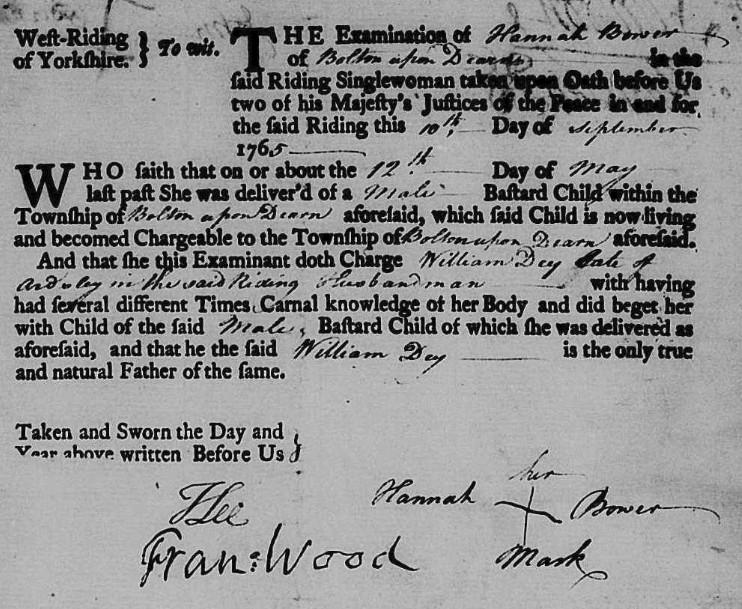 West-Riding } To wit.
of Yorkshire.
THE Examination of Hannah Bower
of Bolton upon Dearne in the
said Riding Singlewoman taken upon Oath before Us
two of his Majesty's Justices of the Peace in and for
the said Riding this 10th. Day of September
1765
WHO saith that on or about the 12th Day of May
last past She was deliver'd of a Male Bastard Child within the
Township of Bolton upon Dearn aforesaid, which said Child is now living
and becomed Chargeable to the Township of Bolton upon Dearn aforesaid.
And that she this Examinant doth Charge William Dey late of
Ardsley in the said Riding Husbandman with having
had several different Times Carnal knowledge of her Body and did beget her
with Child of the said Male, Bastard Child of which she was delivered as
aforesaid, and that he the said William Dey is the only true
and natural Father of the same.
Taken and Sworn the Day and }
Year above written Before Us
her
Hannah X Bower
Mark
T Lee
Fran: Wood